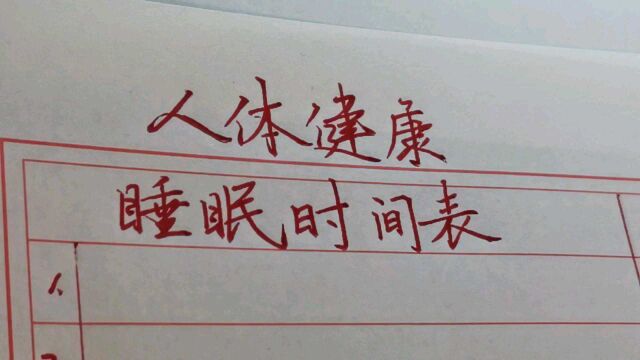 人体健康
睡眠时间表
1.